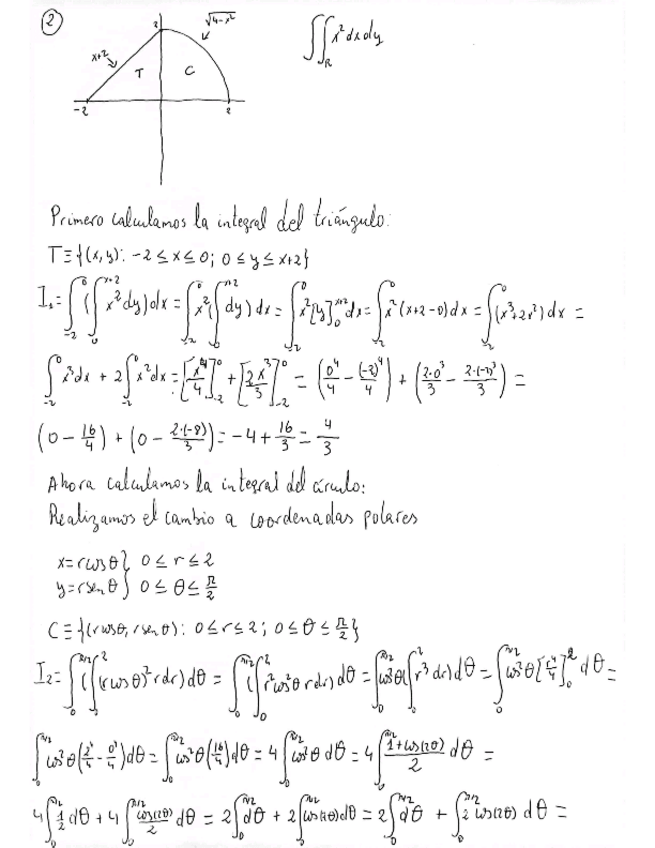 ② 2 √(4-x²) ∬_R x² dx dy
x+2 T C
-2 2
Primero calculamos la integral del triángulo:
T≡{(x, y): -2 ≤ x ≤ 0; 0 ≤ y ≤ x+2}
I₁ = ∫_{-2}^{0} (∫_{0}^{x+2} x² dy) dx = ∫_{-2}^{0} x² (∫_{0}^{x+2} dy) dx = ∫_{-2}^{0} x² [y]_{0}^{x+2} dx = ∫_{-2}^{0} x² (x+2-0) dx = ∫_{-2}^{0} (x³+2x²) dx =
∫_{-2}^{0} x³ dx + 2 ∫_{-2}^{0} x² dx = [x⁴/4]_{-2}^{0} + [2x³/3]_{-2}^{0} = (0⁴/4 - (-2)⁴/4) + (2·0³/3 - 2·(-2)³/3) =
(0 - 16/4) + (0 - 2·(-8)/3) = -4 + 16/3 = 4/3
Ahora calculamos la integral del círculo:
Realizamos el cambio a coordenadas polares
x = r cos θ } 0 ≤ r ≤ 2
y = r sen θ } 0 ≤ θ ≤ π/2
C ≡ {(r cos θ, r sen θ): 0 ≤ r ≤ 2; 0 ≤ θ ≤ π/2}
I₂ = ∫_{0}^{π/2} (∫_{0}^{2} (r cos θ)² r dr) dθ = ∫_{0}^{π/2} (∫_{0}^{2} r² cos² θ r dr) dθ = ∫_{0}^{π/2} cos² θ (∫_{0}^{2} r³ dr) dθ = ∫_{0}^{π/2} cos² θ [r⁴/4]_{0}^{2} dθ =
∫_{0}^{π/2} cos² θ (2⁴/4 - 0⁴/4) dθ = ∫_{0}^{π/2} cos² θ (16/4) dθ = 4 ∫_{0}^{π/2} cos² θ dθ = 4 ∫_{0}^{π/2} (1+cos(2θ))/2 dθ =
4 ∫_{0}^{π/2} 1/2 dθ + 4 ∫_{0}^{π/2} cos(2θ)/2 dθ = 2 ∫_{0}^{π/2} dθ + 2 ∫_{0}^{π/2} cos(2θ) dθ = 2 ∫_{0}^{π/2} dθ + ∫_{0}^{π/2} 2 cos(2θ) dθ =